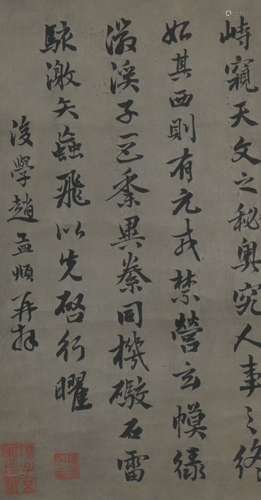 峙窺天文之秘奥究人事之終
始其西則有元戎禁營玄幙綠
徽溪子巨黍異絭同機礮石雷
駭激矢蝱飛以先啓行曜
後學趙孟頫再拜